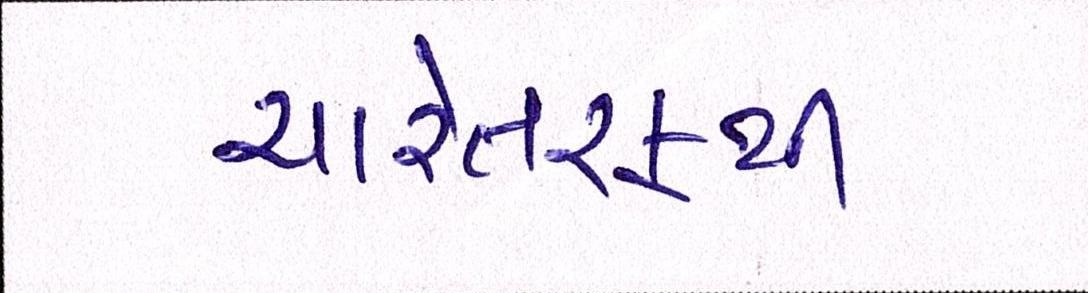 ચારેતરફથી